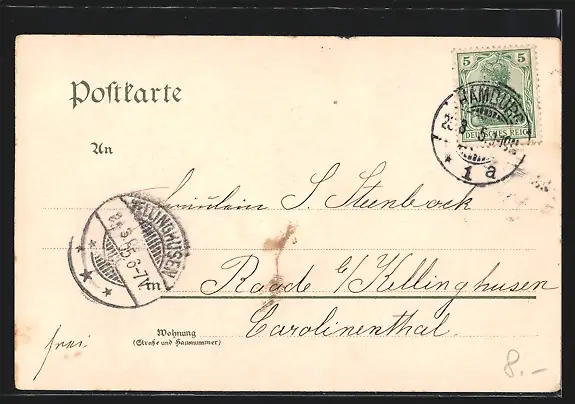 5 5
DEUTSCHES REICH
HAMBURG
1 a
Postkarte
An
Fräulein S. Steenbock
KELLINGHUSEN
6-7
in Raade b/ Kellinghusen
Carolinenthal.
Wohnung
(Straße und Hausnummer)
frei
8.-